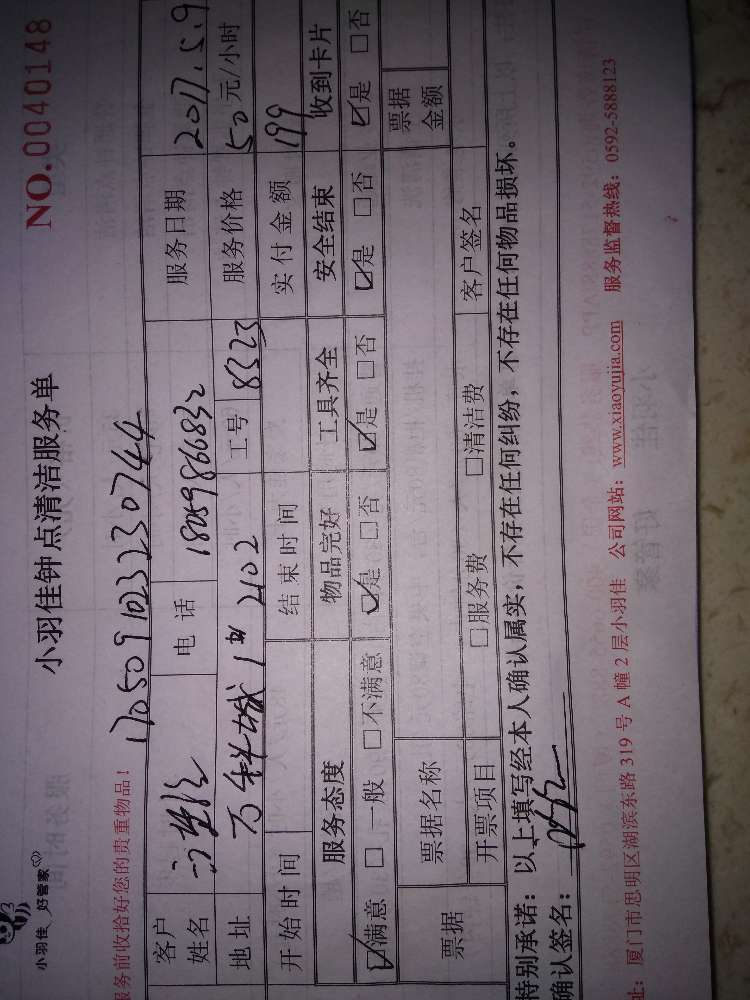 小羽佳 好管家
小羽佳钟点清洁服务单
NO.0040148
服务前收拾好您的贵重物品！
170509103230744
客户姓名 电话 18059866832 服务日期 2017.5.9
地址 万科城 2102 工号 8323 服务价格 50元/小时
开始时间 结束时间 实付金额 199
服务态度 物品完好 工具齐全 安全结束 收到卡片
☑满意 □一般 □不满意 ☑是 □否 ☑是 □否 ☑是 □否 ☑是 □否
票据 票据名称 票据金额
开票项目 □服务费 □清洁费 客户签名
特别承诺：以上填写经本人确认属实，不存在任何纠纷，不存在任何物品损坏。
确认签名：
址：厦门市思明区湖滨东路 319 号 A 幢 2 层小羽佳 公司网站：www.xiaoyujia.com 服务监督热线：0592-5888123